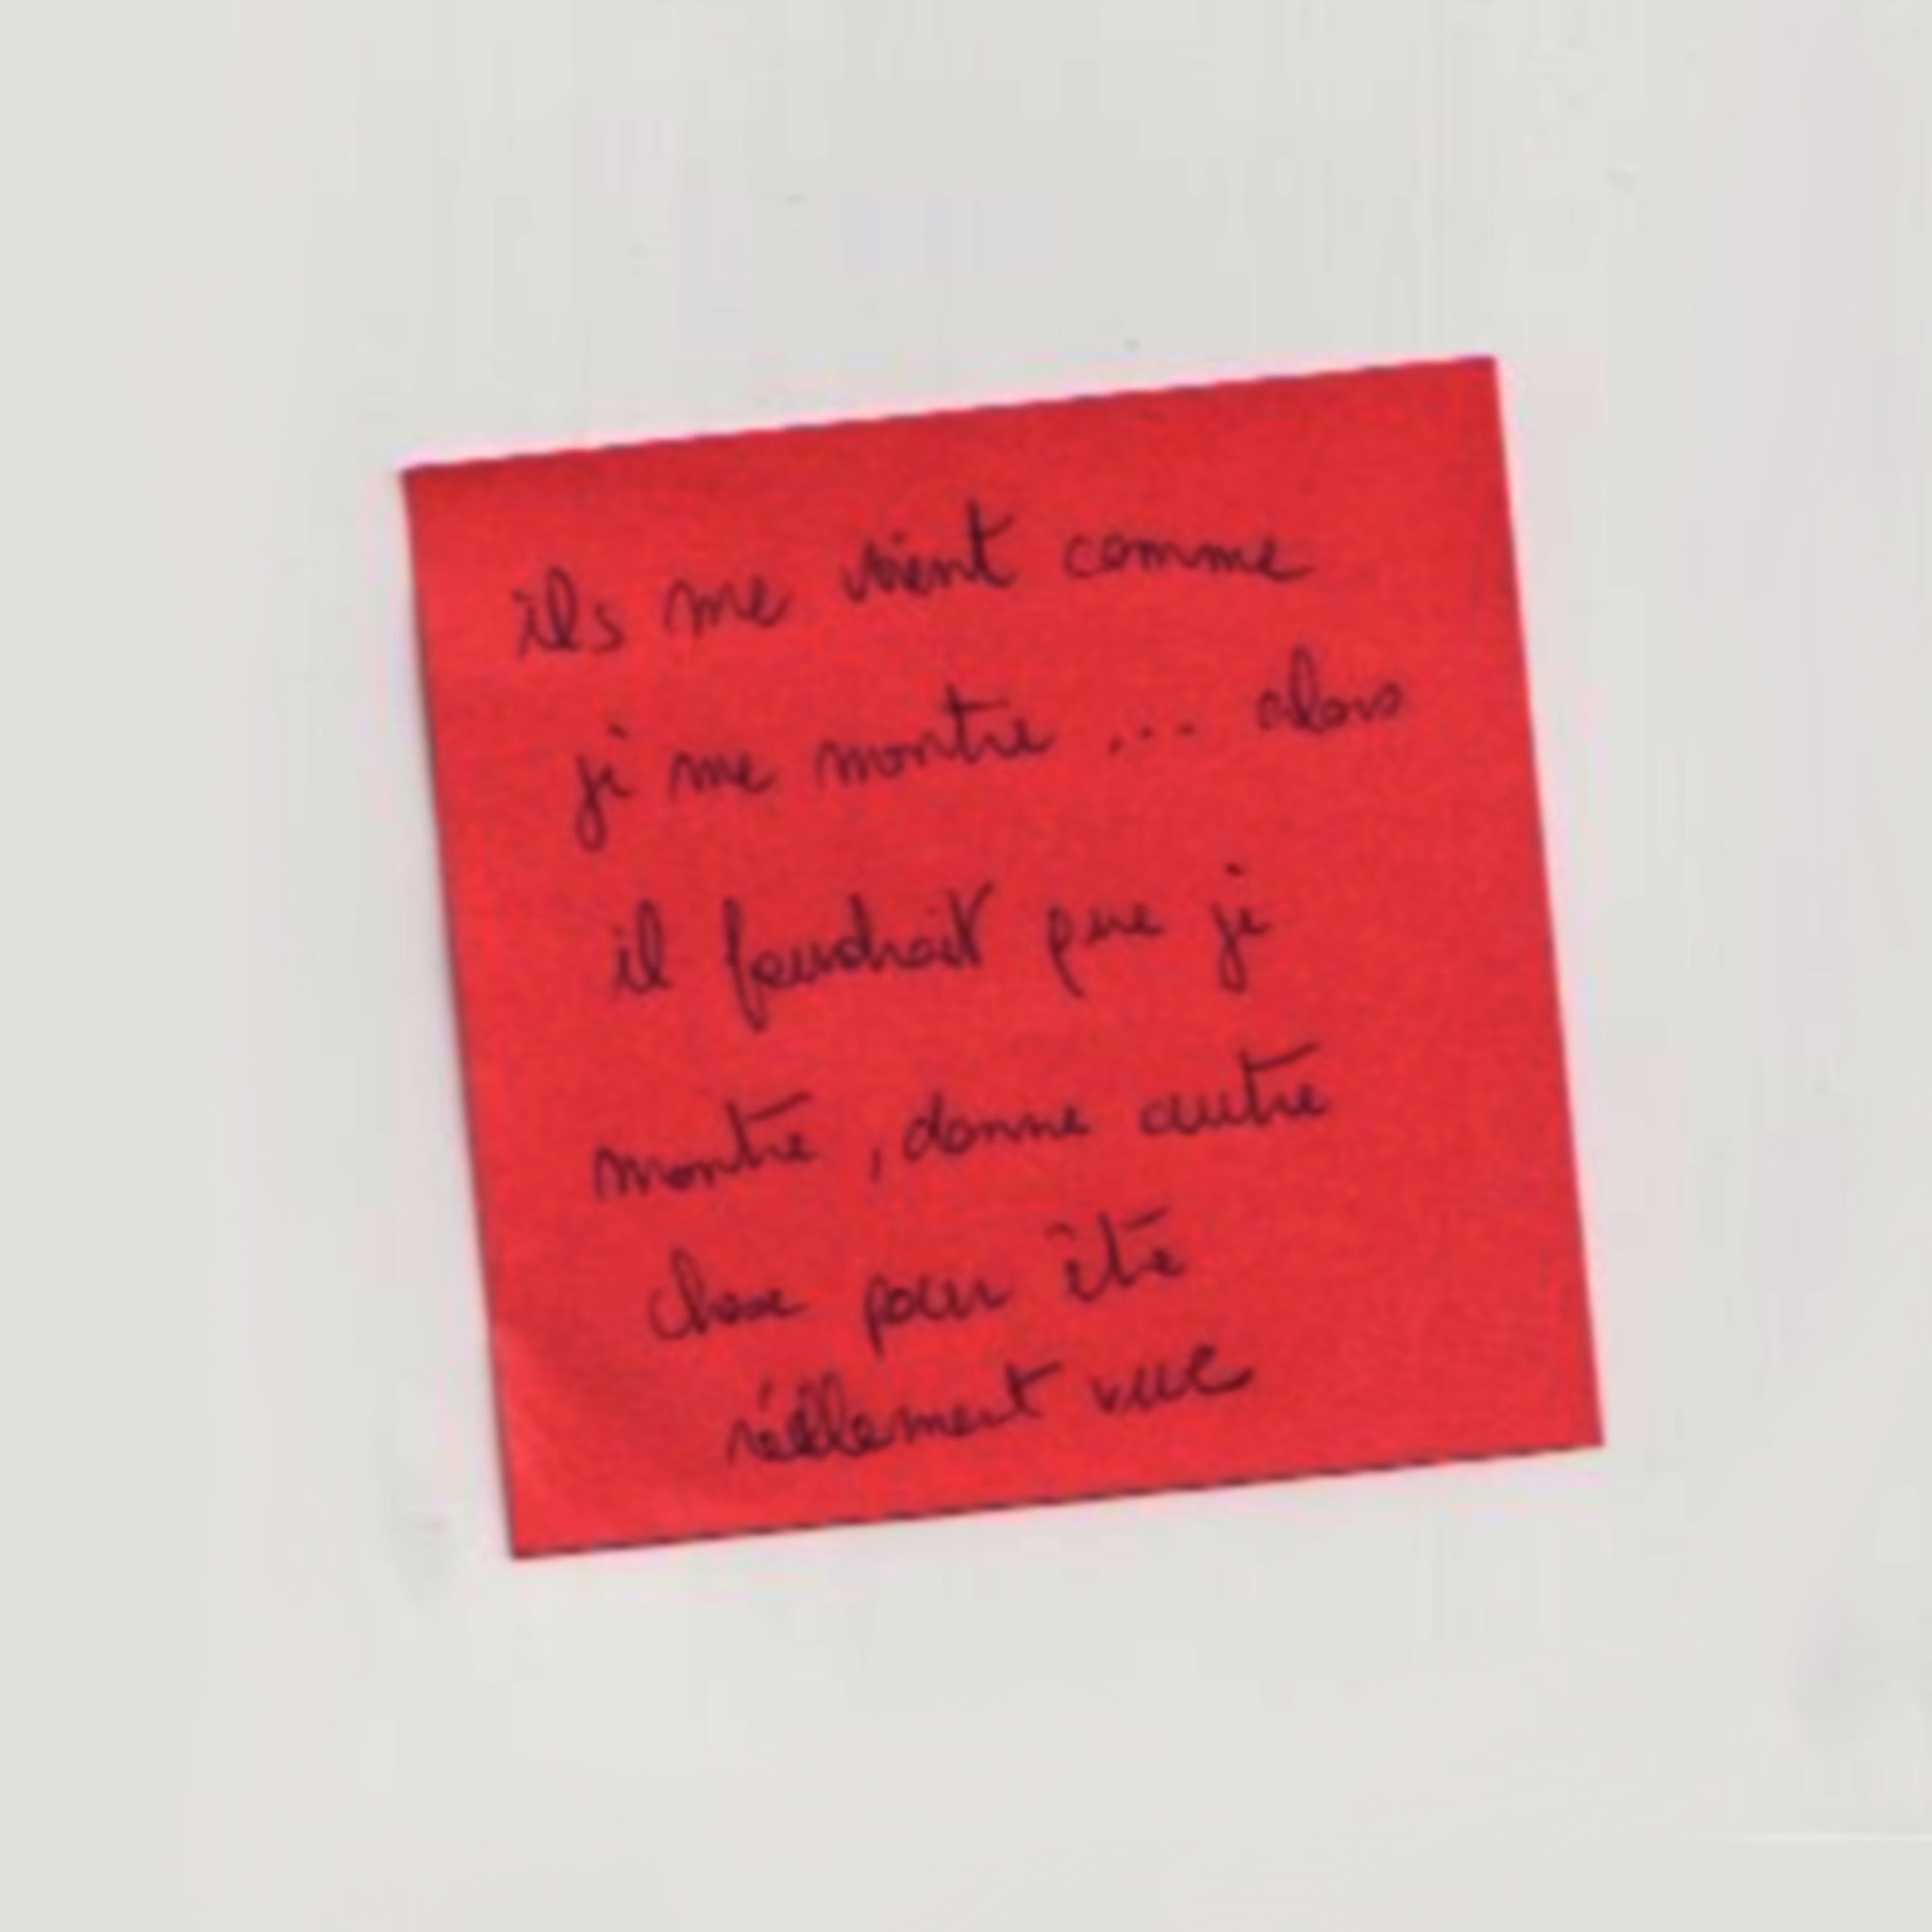 ils me voient comme
je me montre ... alors
il faudrait que je
montre, donne autre
chose pour être
réellement vue